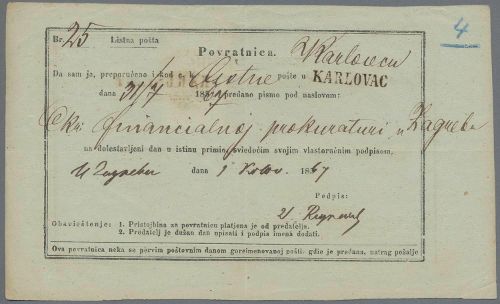 Br. 25 Listna pošta 4
Povratnica. Karlovcu
Da sam ja, preporučeno i kod c. k. Listne pošte u KARLOVAC
dana 31/7 1867 predano pismo pod naslovom:
C kr. financialnoj prokuraturi u Zagrebu
na dolestavljeni dan u istinu primio, sviedočim svojim vlastoručnim podpisom.
U Zagrebu dana 1 1867
Podpis:
Obavištenje: 1. Pristojbina za povratnicu platjena je od predatelja.
2. Predatelj je dužan dan upisati i podpis imena dodati.
Ova povratnica neka se pervim poštovnim danom goreimenovanoj pošti, gdie je predana, natrag pošalje